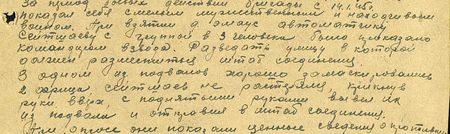 За период боевых действий бригады с 14.1.45г.
показал себя смелым мужественным и находчивым
воином. При взятии д. автоматчику
Сеитшаеву с группой в 3 человека было приказано
командиром взвода. Разведать улицу в которой
должен разместиться штаб соединения.
В одном из подвалов хорошо замаскировались
2 фрица, Сеитшаев не растерялся, крикнув
руки вверх, с поднятыми руками вывел их
из подвала и отправил в штаб соединения.
При опросе они показали ценные сведения о противнике